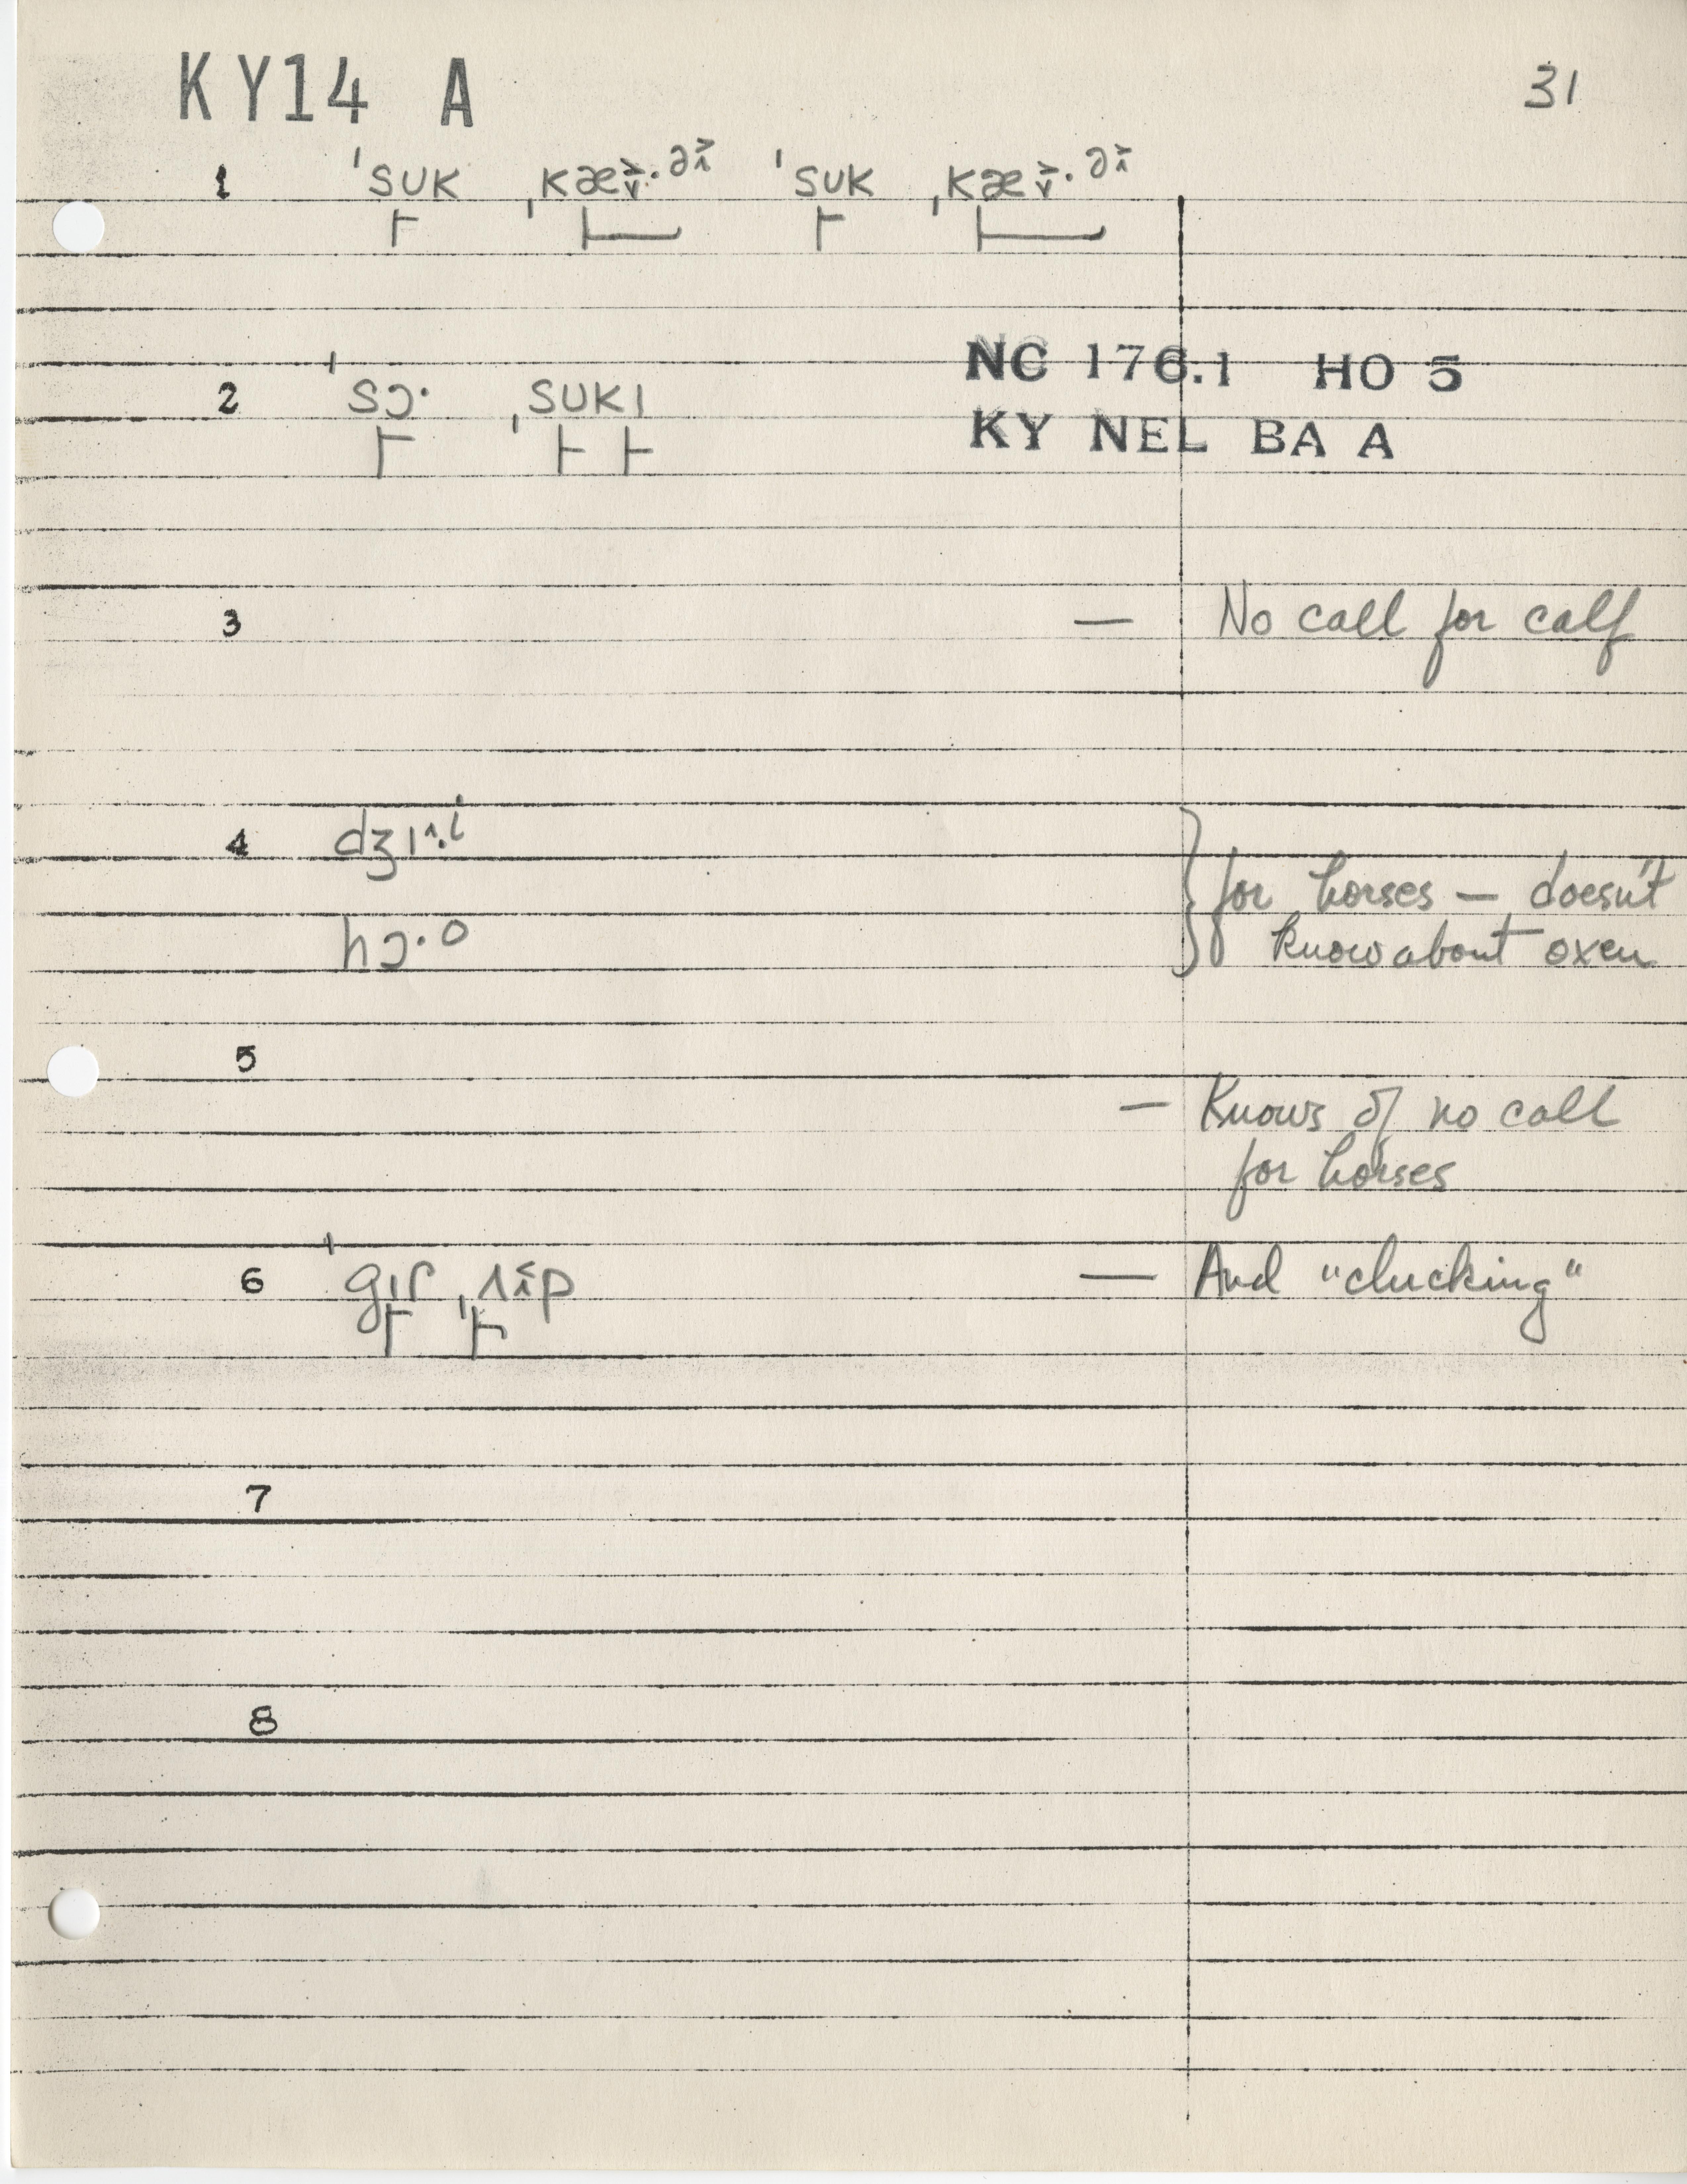 KY14 A 31
1 ˈsuk ˌkæ·ə ˈsuk ˌkæ·ə
NC 176.1 HO 5
2 ˈsɔ· ˌsukɪ
KY NEL BA A
3 — No call for calf
4 dʒɪ^·i
for horses — doesn't
hɔ·o
know about oxen
5
— Knows of no call
for horses
6 — And "clucking"
7
8